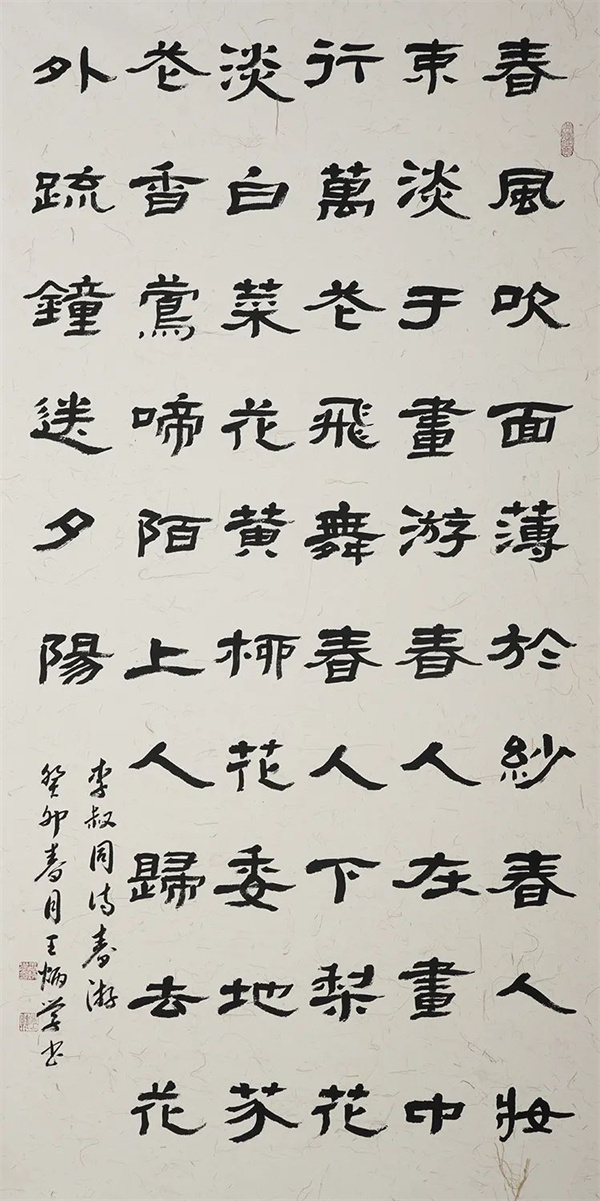 春風吹面薄於紗春人妝
束淡于畫游春人在畫中
行萬花飛舞春人下梨花
淡白菜花黄柳花委地芥
花香鶯啼陌上人歸去花
外疏鐘送夕陽
李叔同詩春游
癸卯春月王炳學书